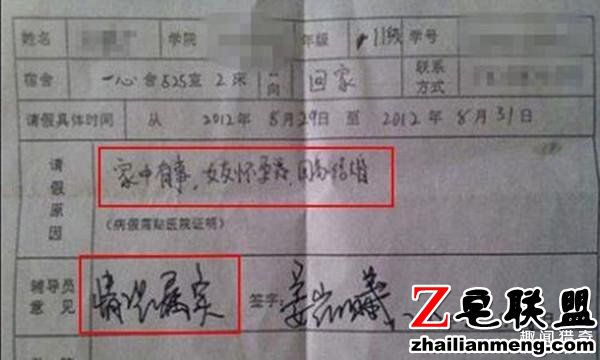 姓名 学院 年级 11级 学号
宿舍 一心舍525室2床 去向 回家 联系方式
请假具体时间 从 2012年8月29日至 2012年8月31日
请假原因 家中有事,女友怀孕,回家结婚
(病假需贴医院证明)
辅导员意见 情况属实 签字:
日
Z皂联盟
zhailianmeng.com
趣闻猎奇